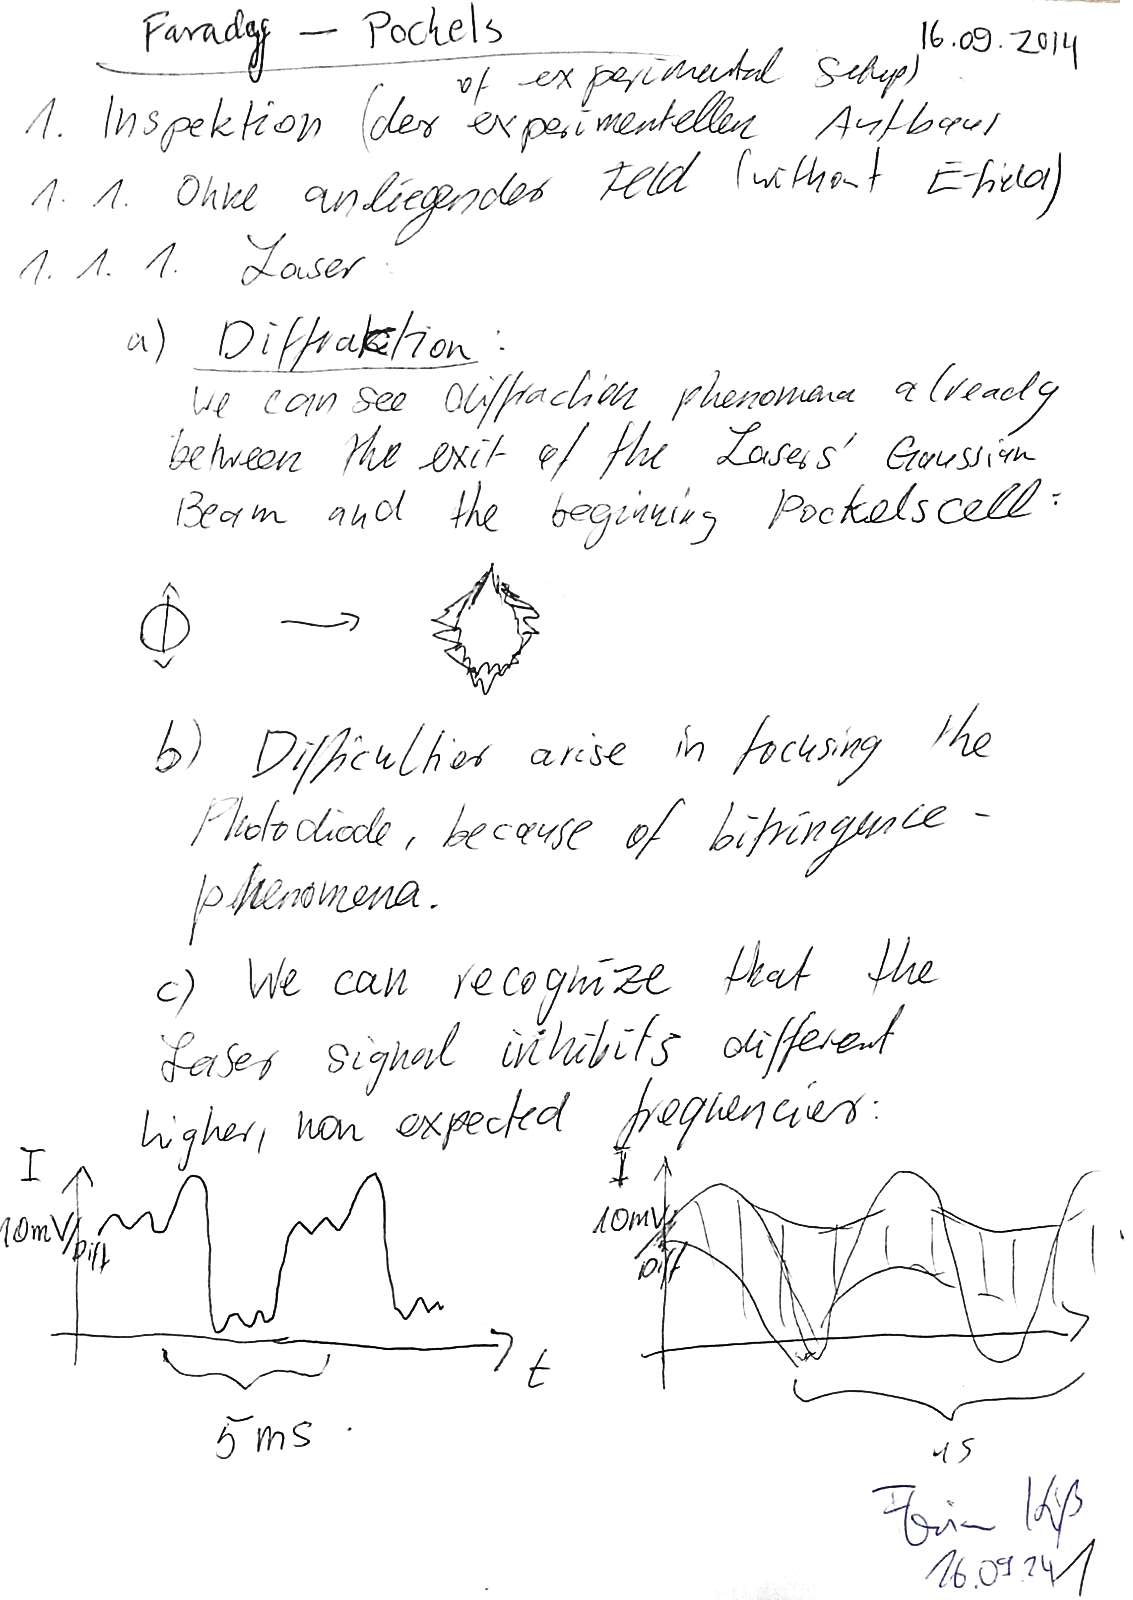 Faraday — Pockels
16.09.2014
of experimental setup)
1. Inspektion (des experimentellen Aufbaus
1. 1. Ohne anliegendes Feld (without E-field)
1. 1. 1. Laser:
a) Diffraktion:
We can see diffraction phenomena already
between the exit of the Lasers' Gaussian
Beam and the beginning Pockelscell:
b) Difficulties arise in focusing the
Photodiode, because of bifringence-
phenomena.
c) We can recognize that the
Laser signal inhibits different
higher, non expected frequencies:
I
10mV/Diff
t
5 ms
I
10mV/Diff
1s
16.09.14
1